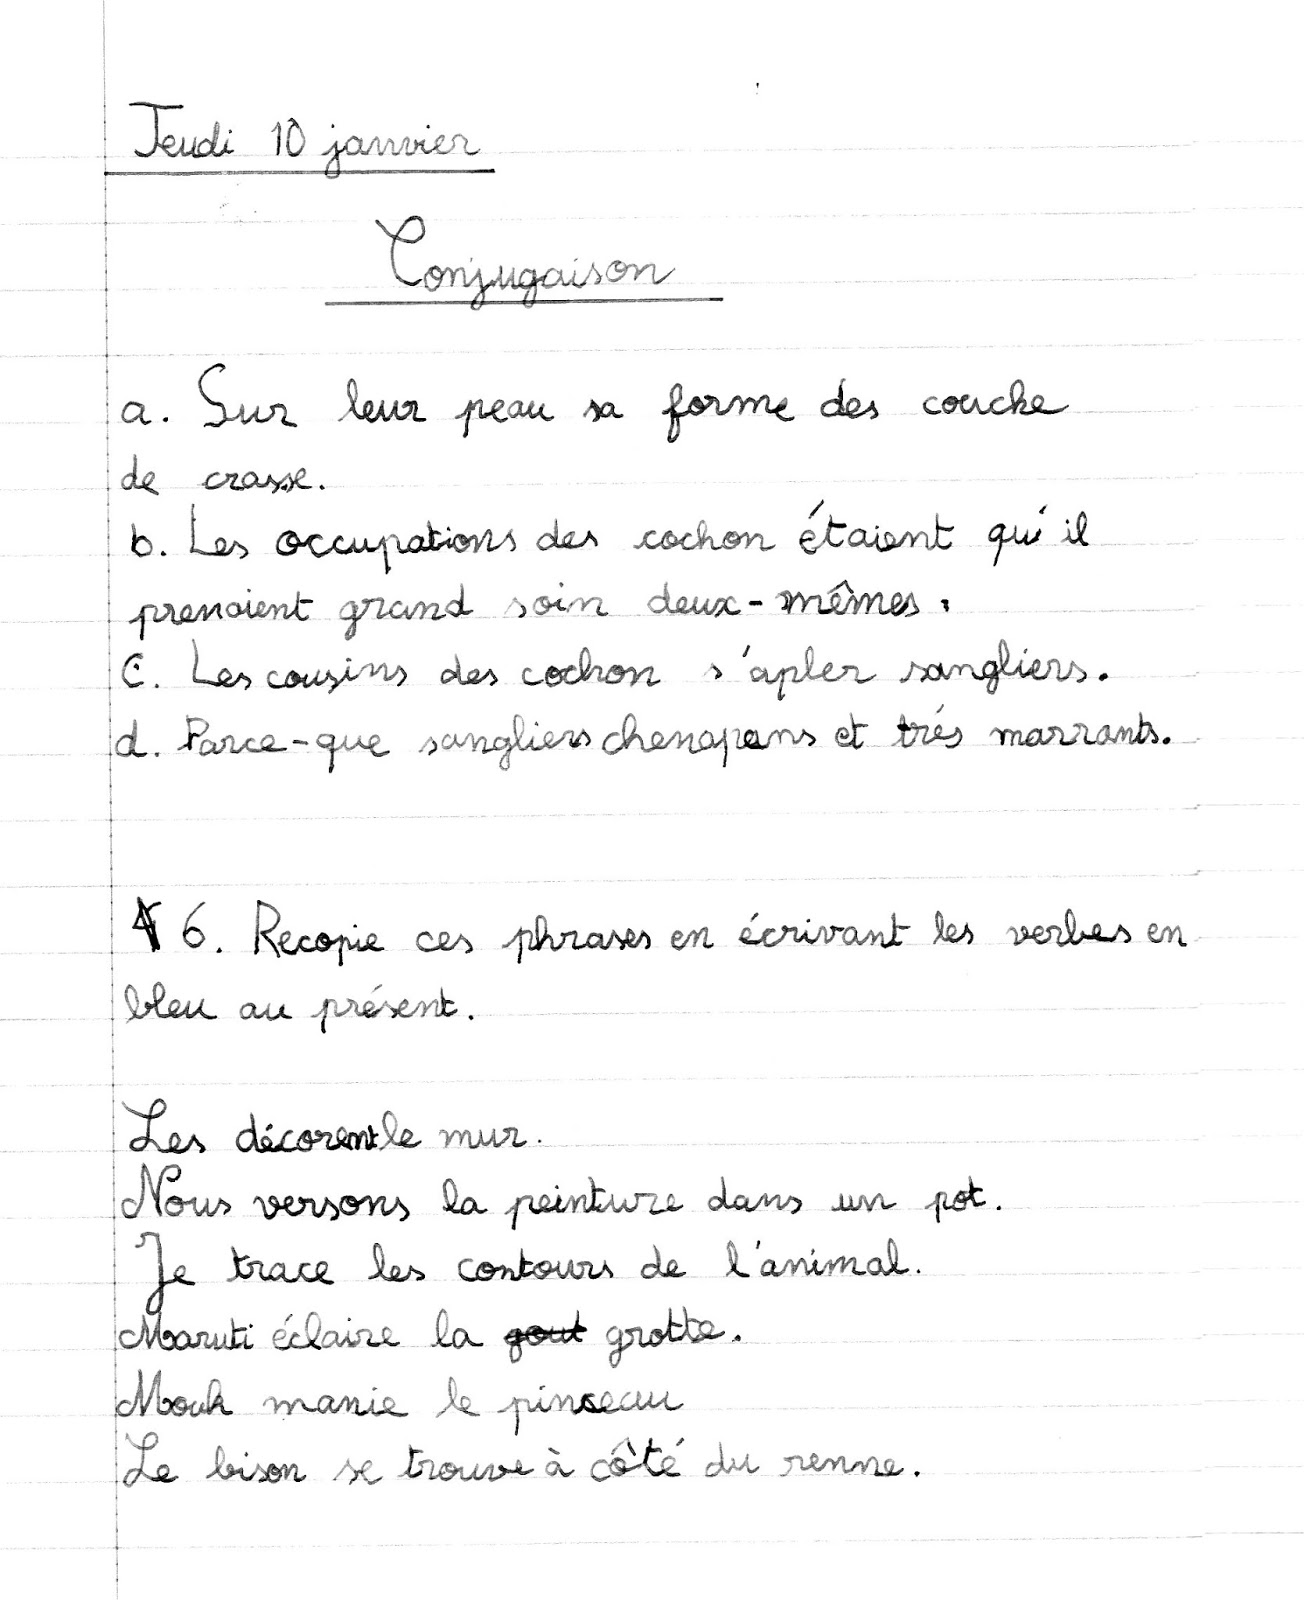 Jeudi 10 janvier
Conjugaison
a. Sur leur peau sa forme des couche
de crasse.
b. Les occupations des cochon étaient qu'il
prenaient grand soin deux-mêmes.
C. Les cousins des cochon s'apler sangliers.
d. Parce-que sangliers chenapans et trés marrants.
6. Recopie ces phrases en écrivant les verbes en
bleu au présent.
Les décorent le mur.
Nous versons la peinture dans un pot.
Je trace les contours de l'animal.
Maruti éclaire la grotte.
Mouk manie le pinseau
Le bison se trouve à côté du renne.